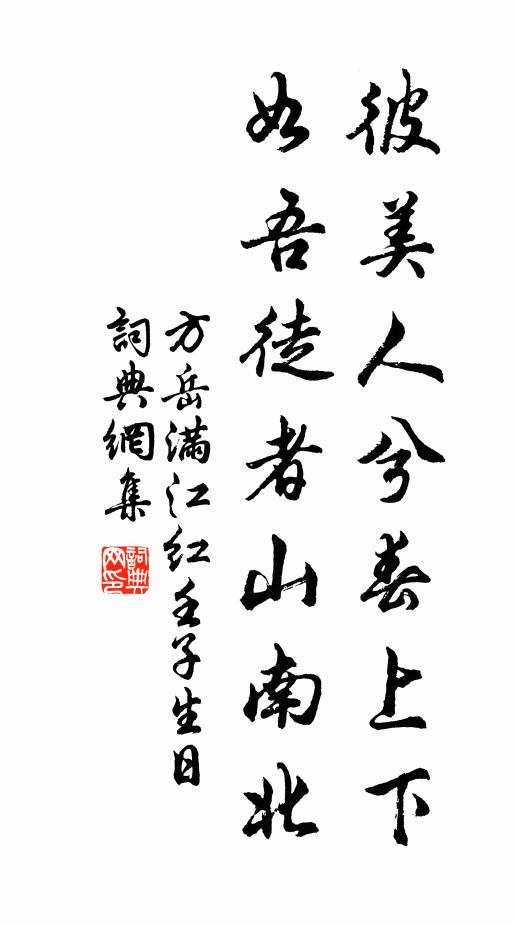 彼美人兮春上下
如吾徒者山南北
方岳满江红壬子生日
詞典網集
詞典网印